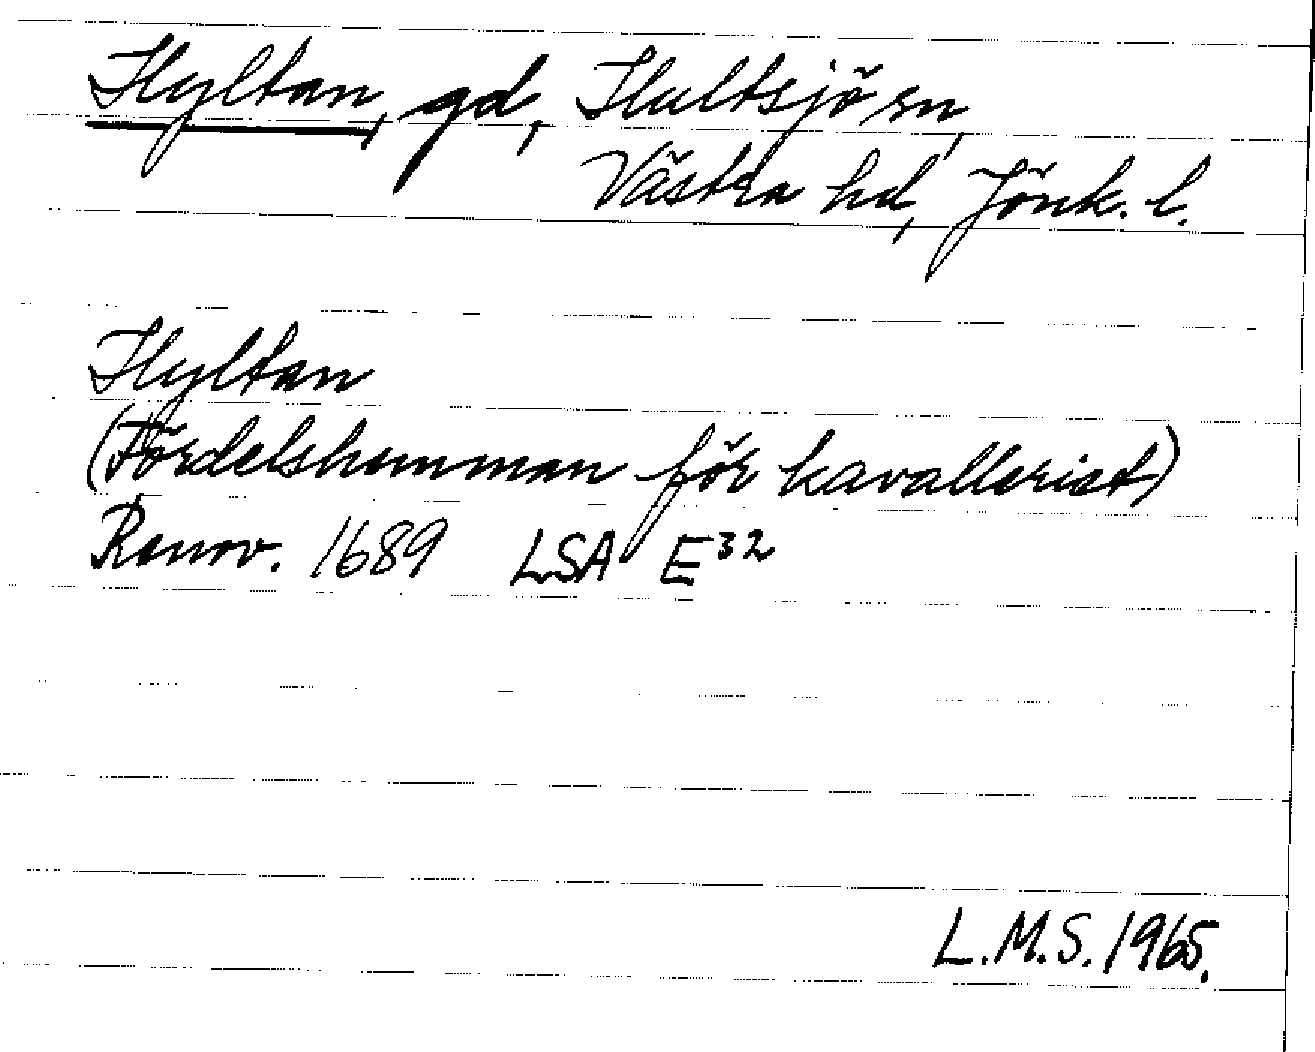 Hyltan, gd, Hultsjö sn,
Västra hd, Jönk. l.
Hyltan
(Fördelshemman för kavallerist)
Renov. 1689 LSA E³²
L.M.S. 1965.